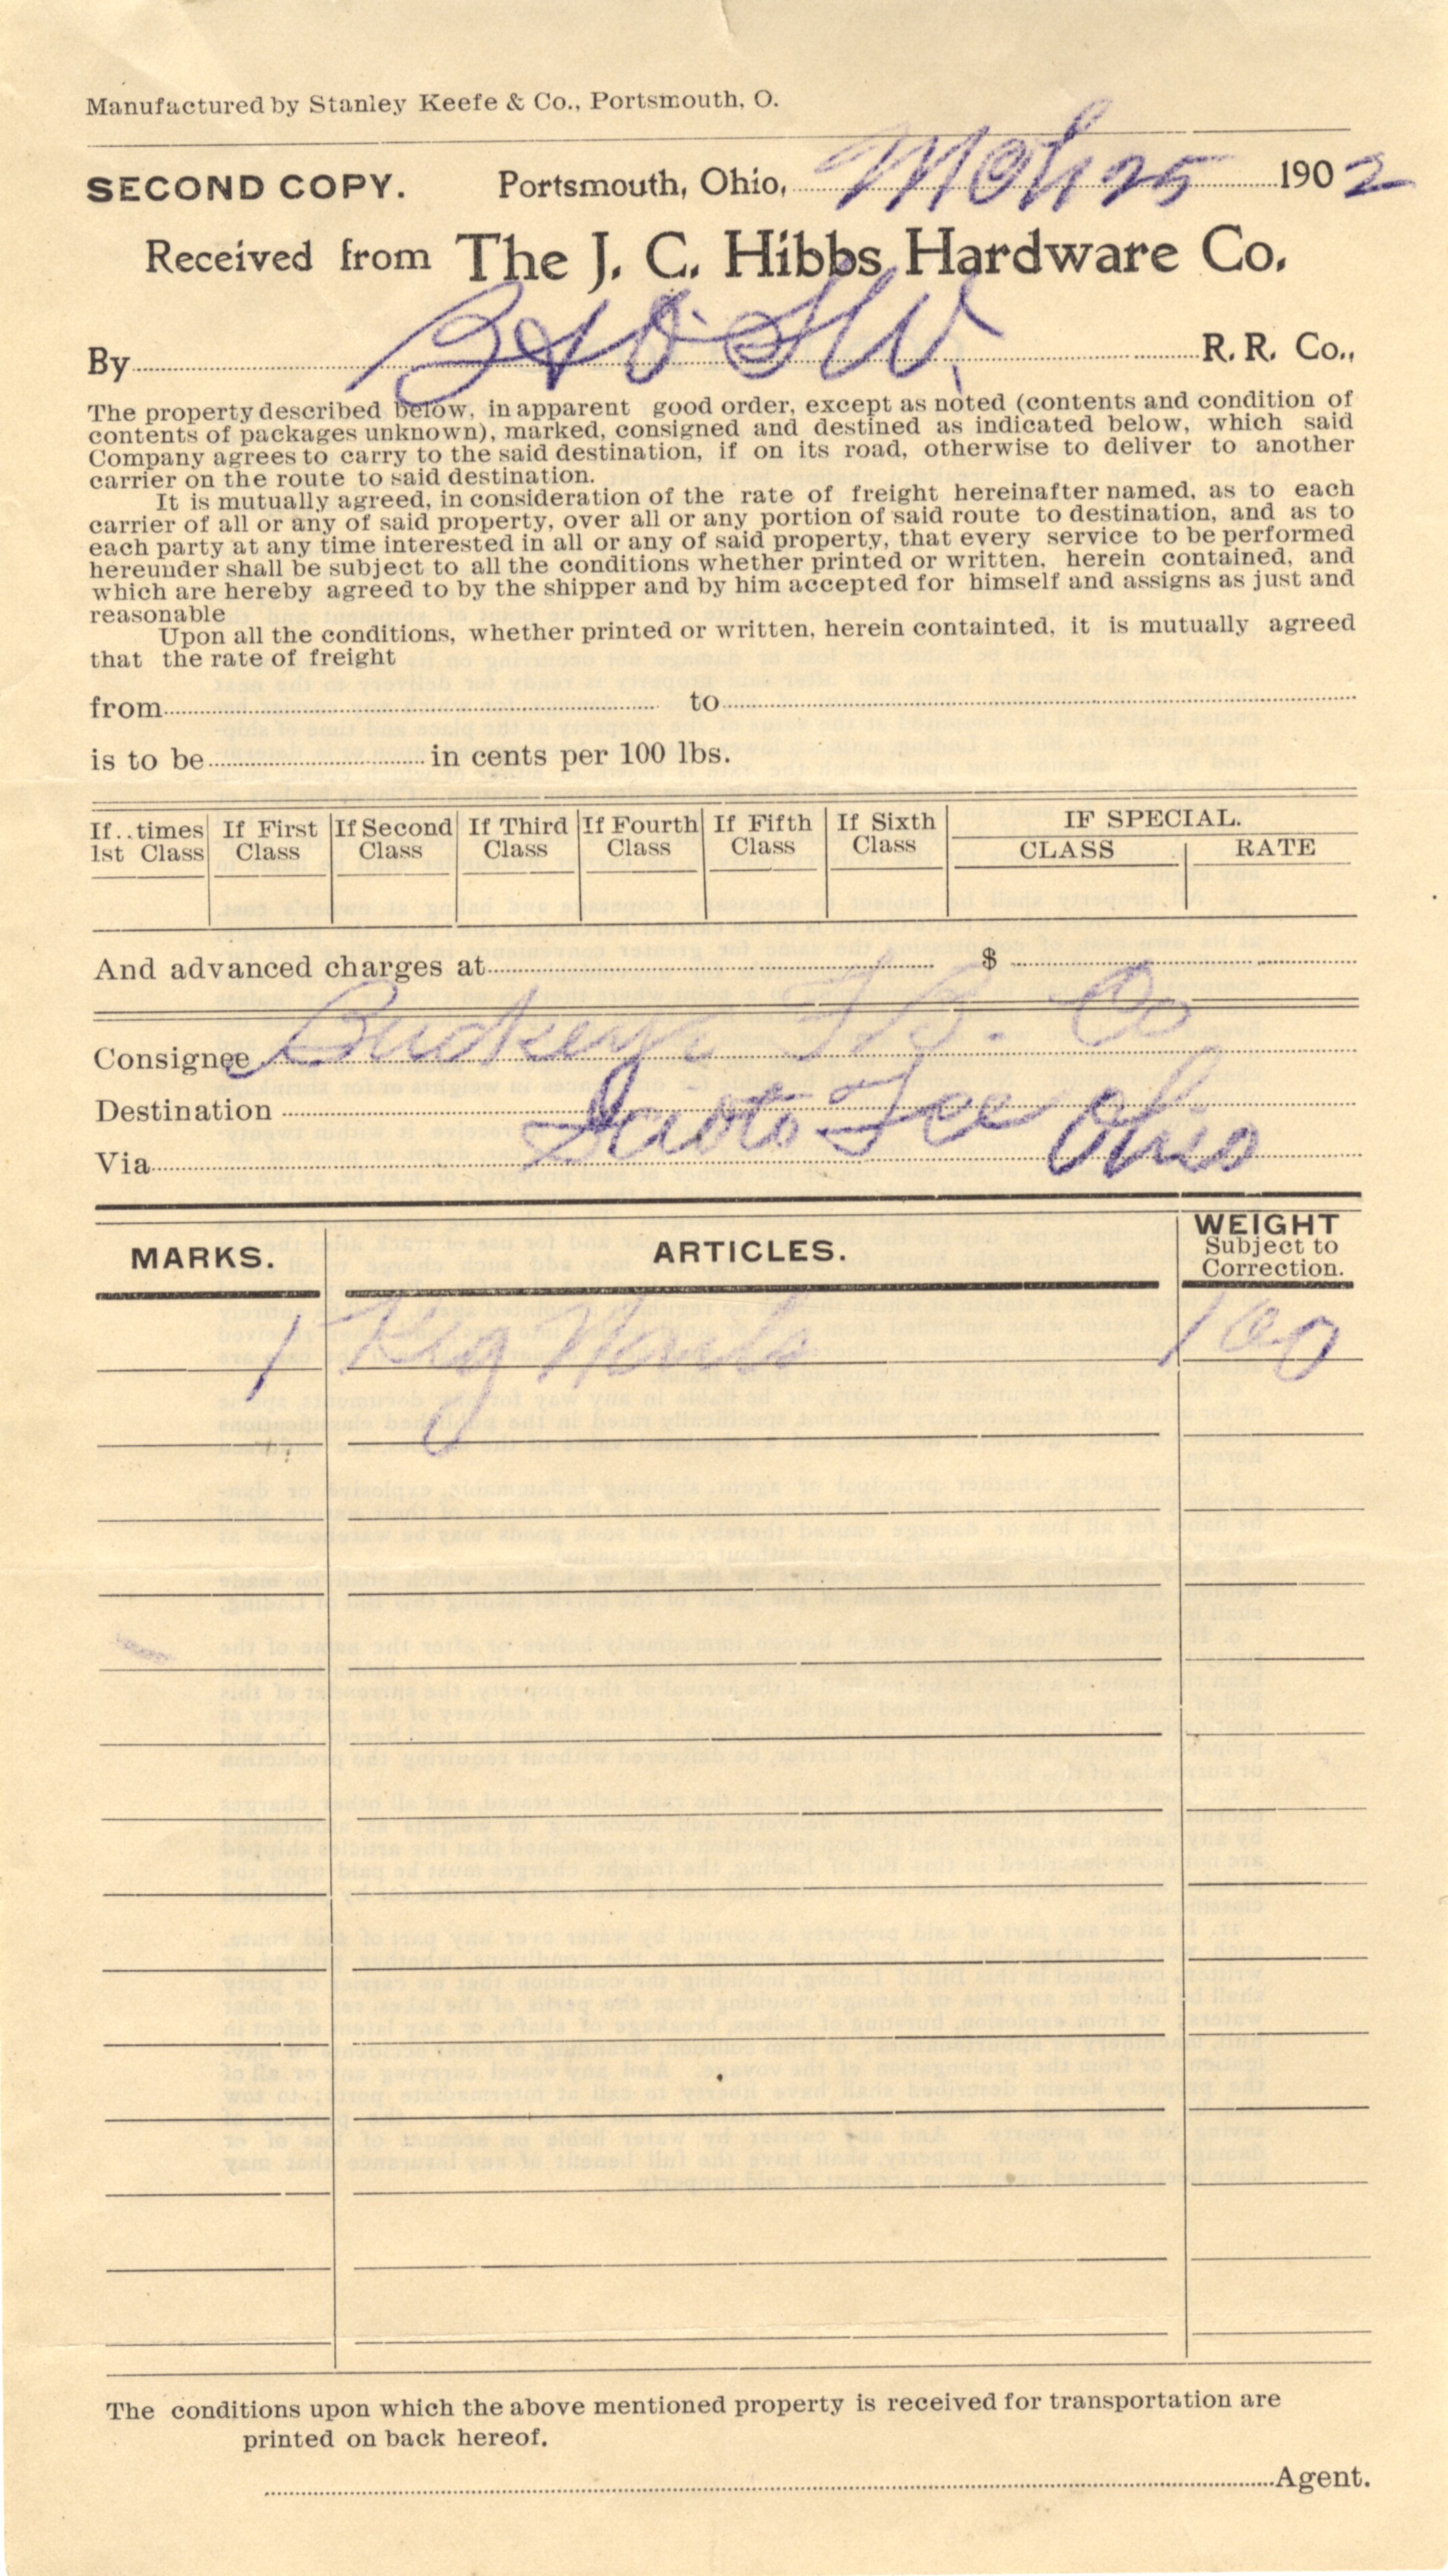 Manufactured by Stanley Keefe & Co., Portsmouth, O.
SECOND COPY. Portsmouth, Ohio, Mch 25 1902
Received from The J. C. Hibbs Hardware Co.
By B & O S W. R. R. Co.,
The property described below, in apparent good order, except as noted (contents and condition of
contents of packages unknown), marked, consigned and destined as indicated below, which said
Company agrees to carry to the said destination, if on its road, otherwise to deliver to another
carrier on the route to said destination.
It is mutually agreed, in consideration of the rate of freight hereinafter named, as to each
carrier of all or any of said property, over all or any portion of said route to destination, and as to
each party at any time interested in all or any of said property, that every service to be performed
hereunder shall be subject to all the conditions whether printed or written, herein contained, and
which are hereby agreed to by the shipper and by him accepted for himself and assigns as just and
reasonable
Upon all the conditions, whether printed or written, herein containted, it is mutually agreed
that the rate of freight
from to
is to be in cents per 100 lbs.
If..times 1st Class If First Class If Second Class If Third Class If Fourth Class If Fifth Class If Sixth Class IF SPECIAL.
CLASS RATE
And advanced charges at $
Consignee Buckeye F B. Co
Destination Scioto Fce Ohio
Via
MARKS. ARTICLES. WEIGHT Subject to Correction.
1 Keg Nails 100
The conditions upon which the above mentioned property is received for transportation are
printed on back hereof.
Agent.